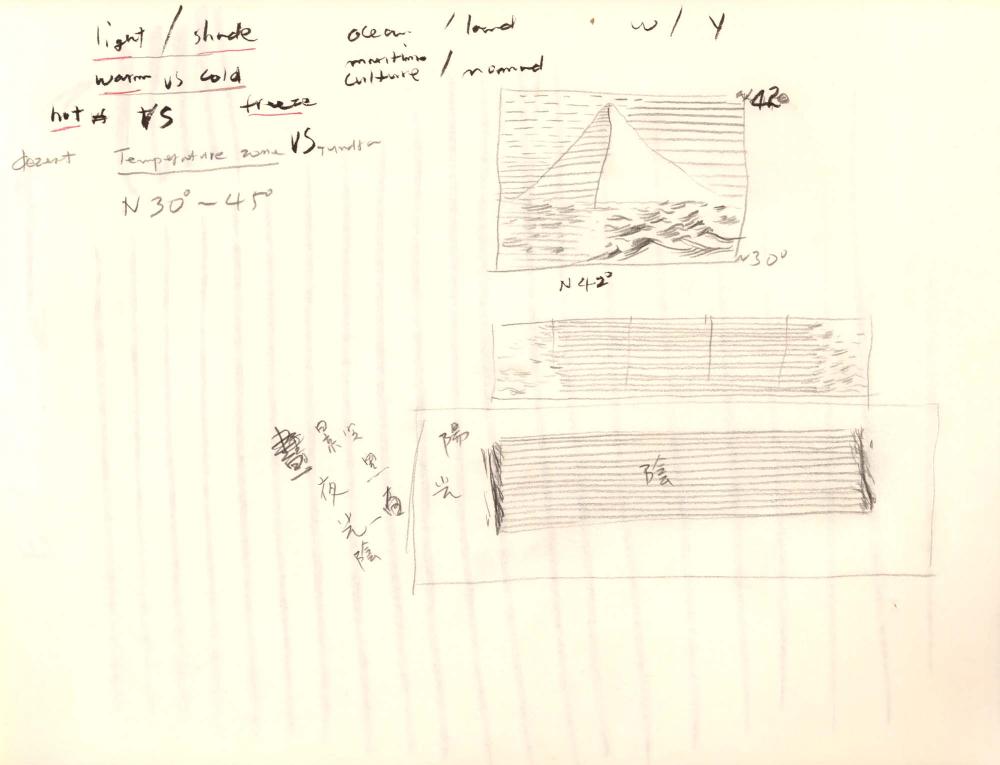 light / shade
warm vs cold
hot vs freeze
dezert Temperature zone VS Tundra
N 30° ~ 45°
ocean / land
maritime
culture / nomad
w / Y
N 42°
N 30°
N 42°
陽
光
陰
夜
光
陰